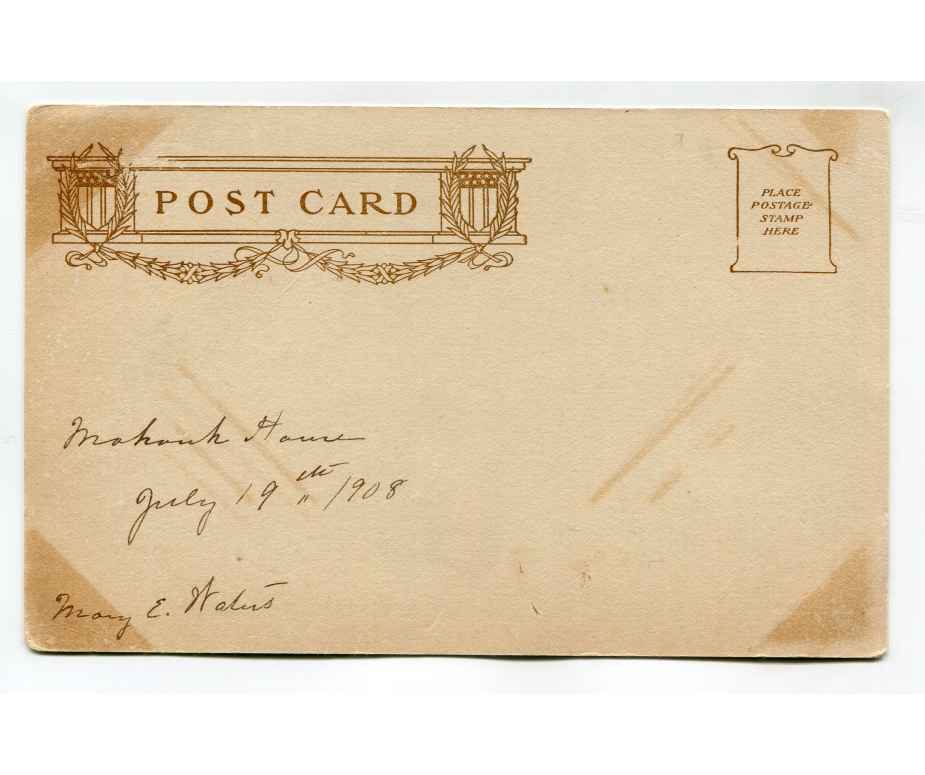 POST CARD
PLACE
POSTAGE
STAMP
HERE
Mohonk House
July 19th 1908
Mary E. Waters